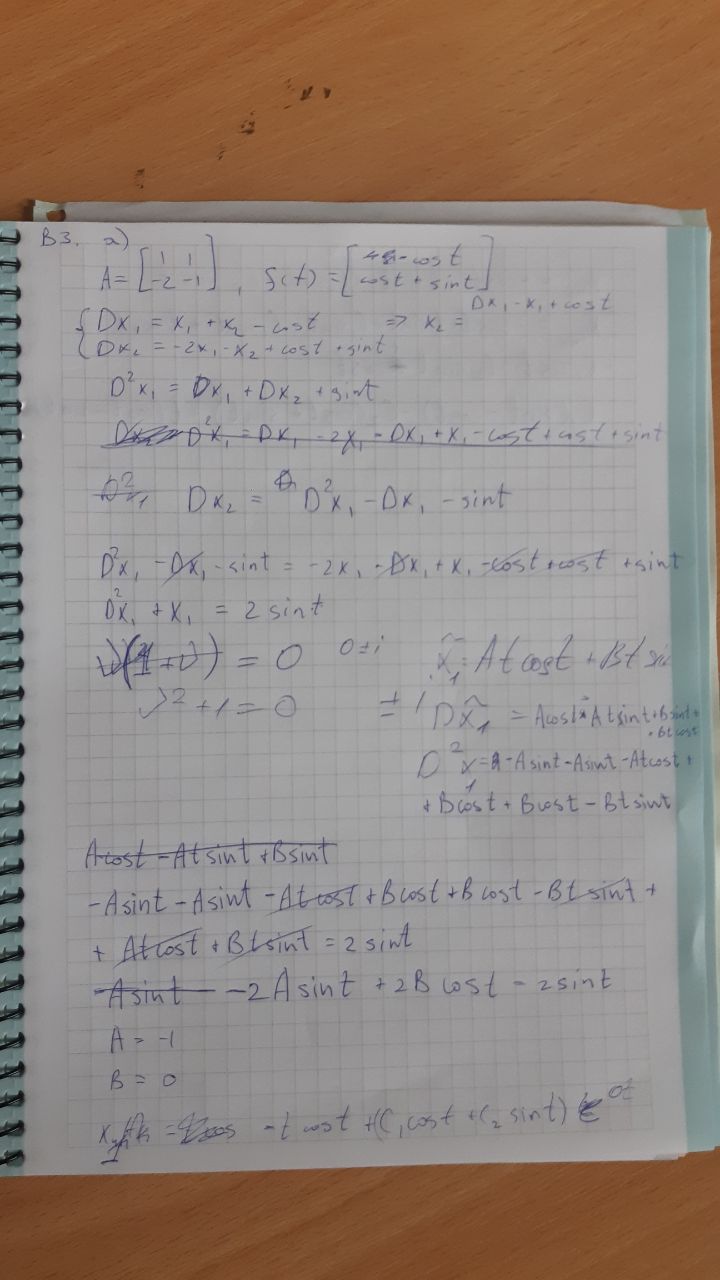 B3. a)
A = [1 1; -2 -1], f(t) = [-cost; cost + sint]
{ Dx₁ = x₁ + x₂ - cost ⇒ x₂ = Dx₁ - x₁ + cost
Dx₂ = -2x₁ - x₂ + cost + sint
D²x₁ = Dx₁ + Dx₂ + sint
D²x₁ = Dx₁ - 2x₁ - Dx₁ + x₁ - cost + cost + sint
D² Dx₂ = D²x₁ - Dx₁ - sint
D²x₁ - Dx₁ - sint = -2x₁ - Dx₁ + x₁ - cost + cost + sint
D²x₁ + x₁ = 2 sint
= 0 0 ± i x̃₁ = At cost + Bt sin
λ² + 1 = 0 ± i Dx̃₁ = Acost - Atsint + Bsint +
+ Bt cost
D²x₁ = -Asint - Asint - Atcost +
+ Bcost + Bcost - Btsint
Acost - Atsint + Bsint
-Asint - Asint - Atcost + Bcost + Bcost - Bt sint +
+ Atcost + Btsint = 2 sint
Asint -2Asint + 2B cost = 2sint
A = -1
B = 0
= -t cost + (C₁cost + C₂ sint) e⁰ᵗ